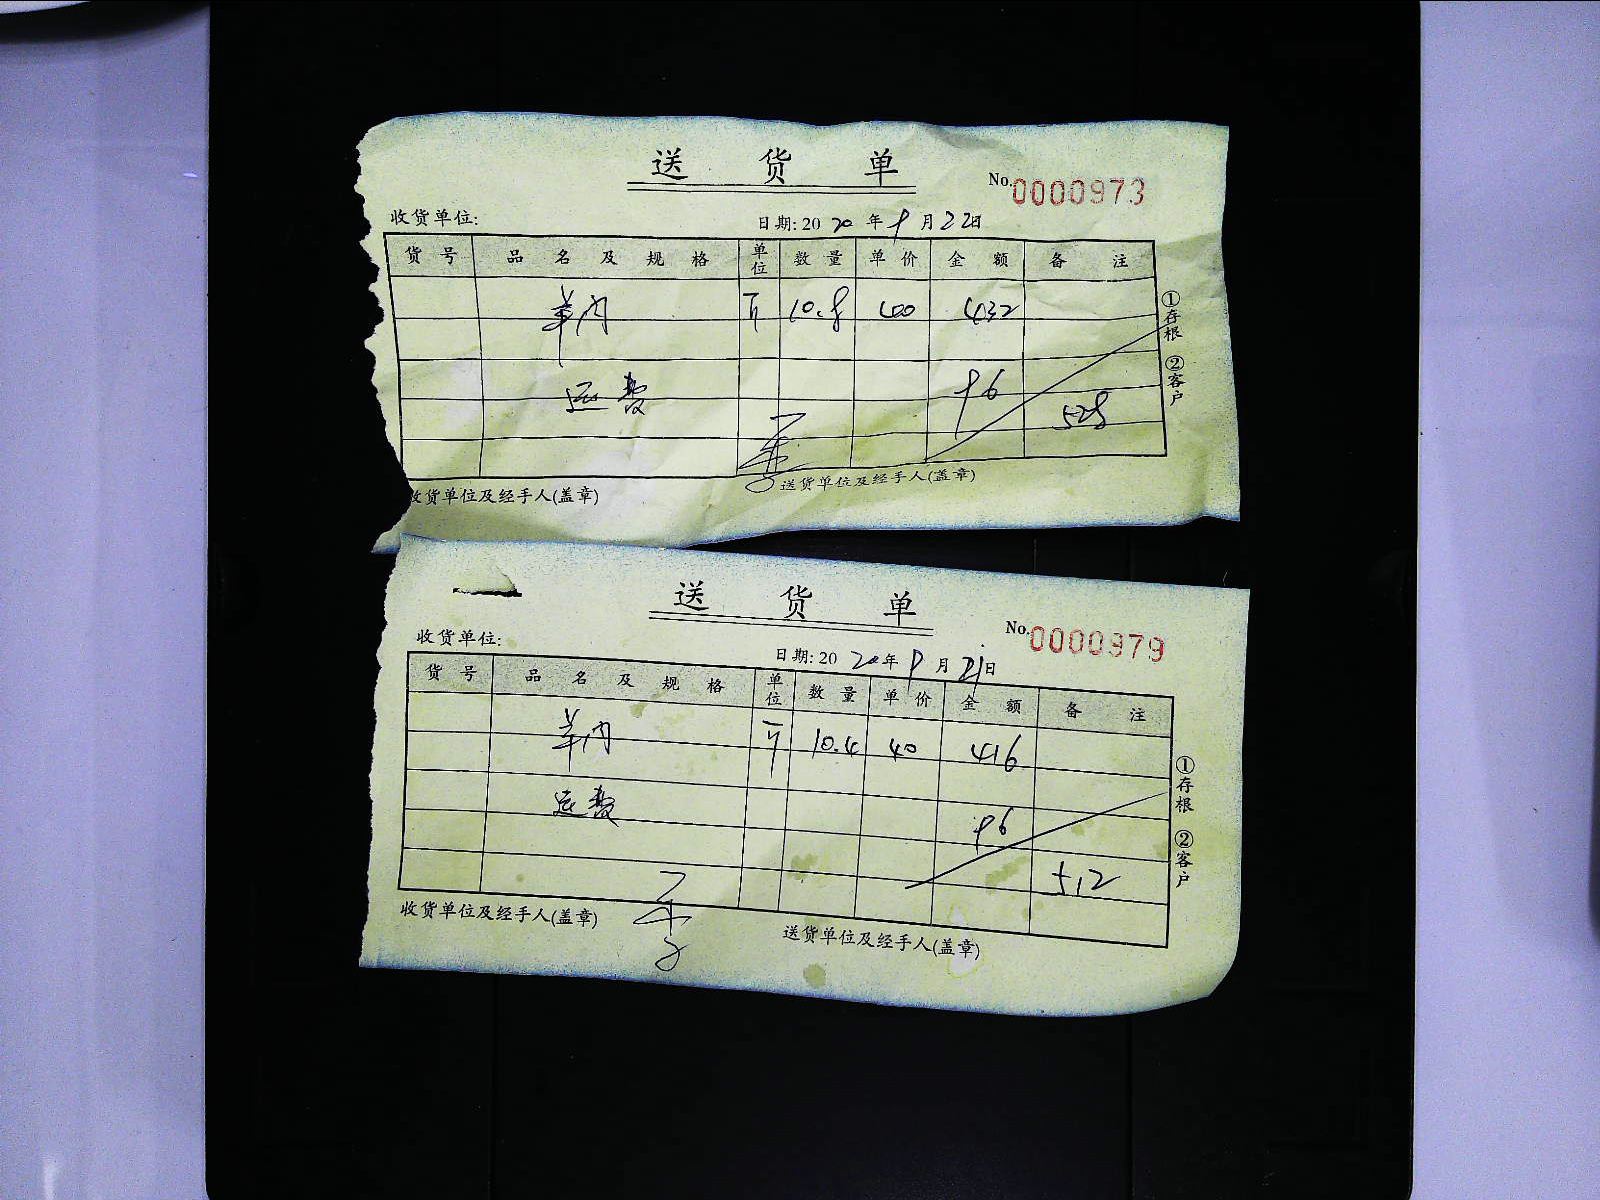 送 货 单
No. 0000973
收货单位: 日期: 2020 年 9 月 22 日
货 号 品 名 及 规 格 单位 数 量 单 价 金 额 备 注
羊肉 斤 10.8 400 432
运费 96
528
①存根 ②客户
收货单位及经手人(盖章) 送货单位及经手人(盖章)
送 货 单
No. 0000979
收货单位: 日期: 2020 年 9 月 日
货 号 品 名 及 规 格 单位 数 量 单 价 金 额 备 注
羊肉 斤 10.4 40 416
运费 96
512
①存根 ②客户
收货单位及经手人(盖章) 送货单位及经手人(盖章)